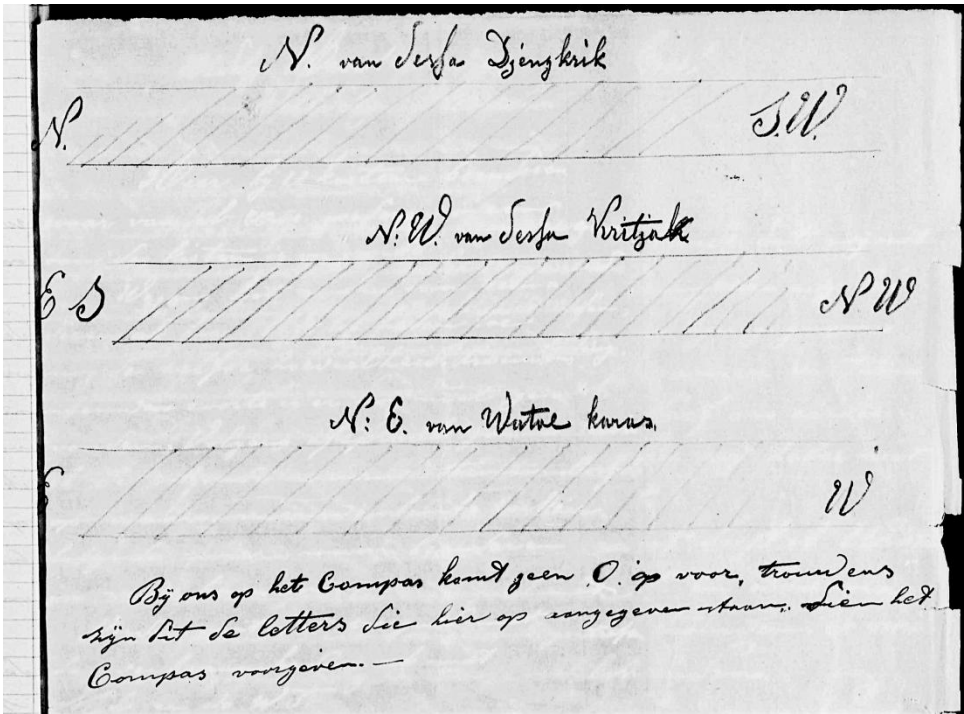 N. van dessa Djengkrik
N. S.W.
N.W. van dessa Kritjak
E S N W
N: E. van Watoe karas.
E W
Bij ons op het Compas komt geen O. op voor, trouwens
zijn dit de letters die hier op aangegeven staan. dien het
Compas voorgeven. —